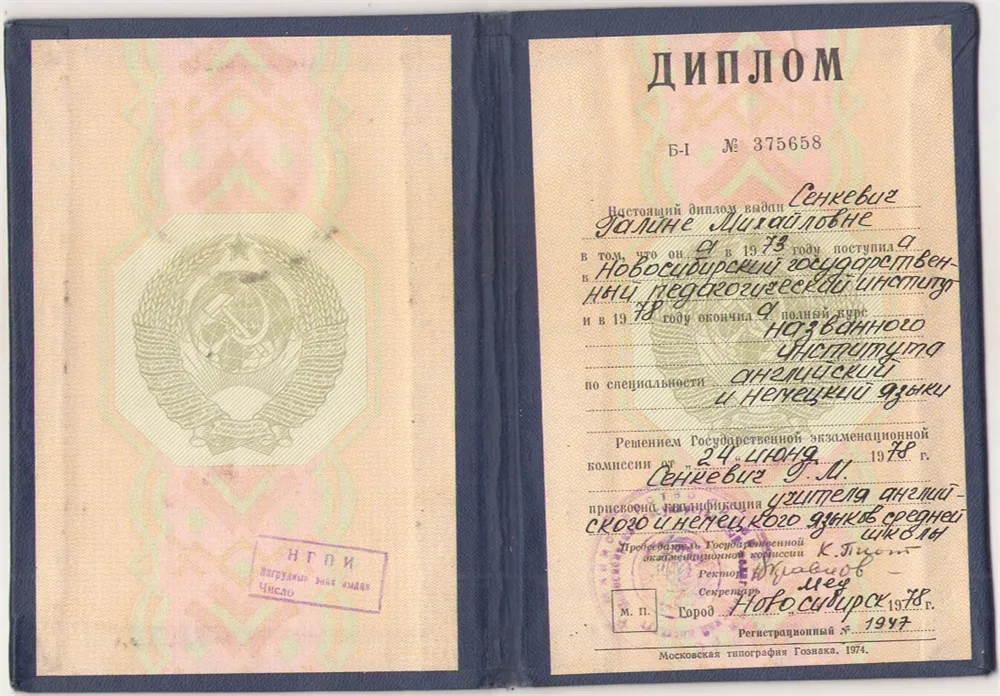 НГПИ
Нагрудный знак выдан
Число
ДИПЛОМ
Б-I № 375658
Настоящий диплом выдан Сенкевич
Галине Михайловне
в том, что он а в 1973 году поступил а
в Новосибирский государствен-
ный педагогический институт
и в 1978 году окончил а полный курс
названного
института
по специальности английский
и немецкий языки
Решением Государственной экзаменационной
комиссии от „24“ июня 1978 г.
Сенкевич Г. М.
присвоена квалификация учителя англий-
ского и немецкого языков средней
школы
Председатель Государственной
экзаменационной комиссии
Ректор
Секретарь
М. П. Город Новосибирск 1978 г.
Регистрационный № 1947
Московская типография Гознака. 1974.